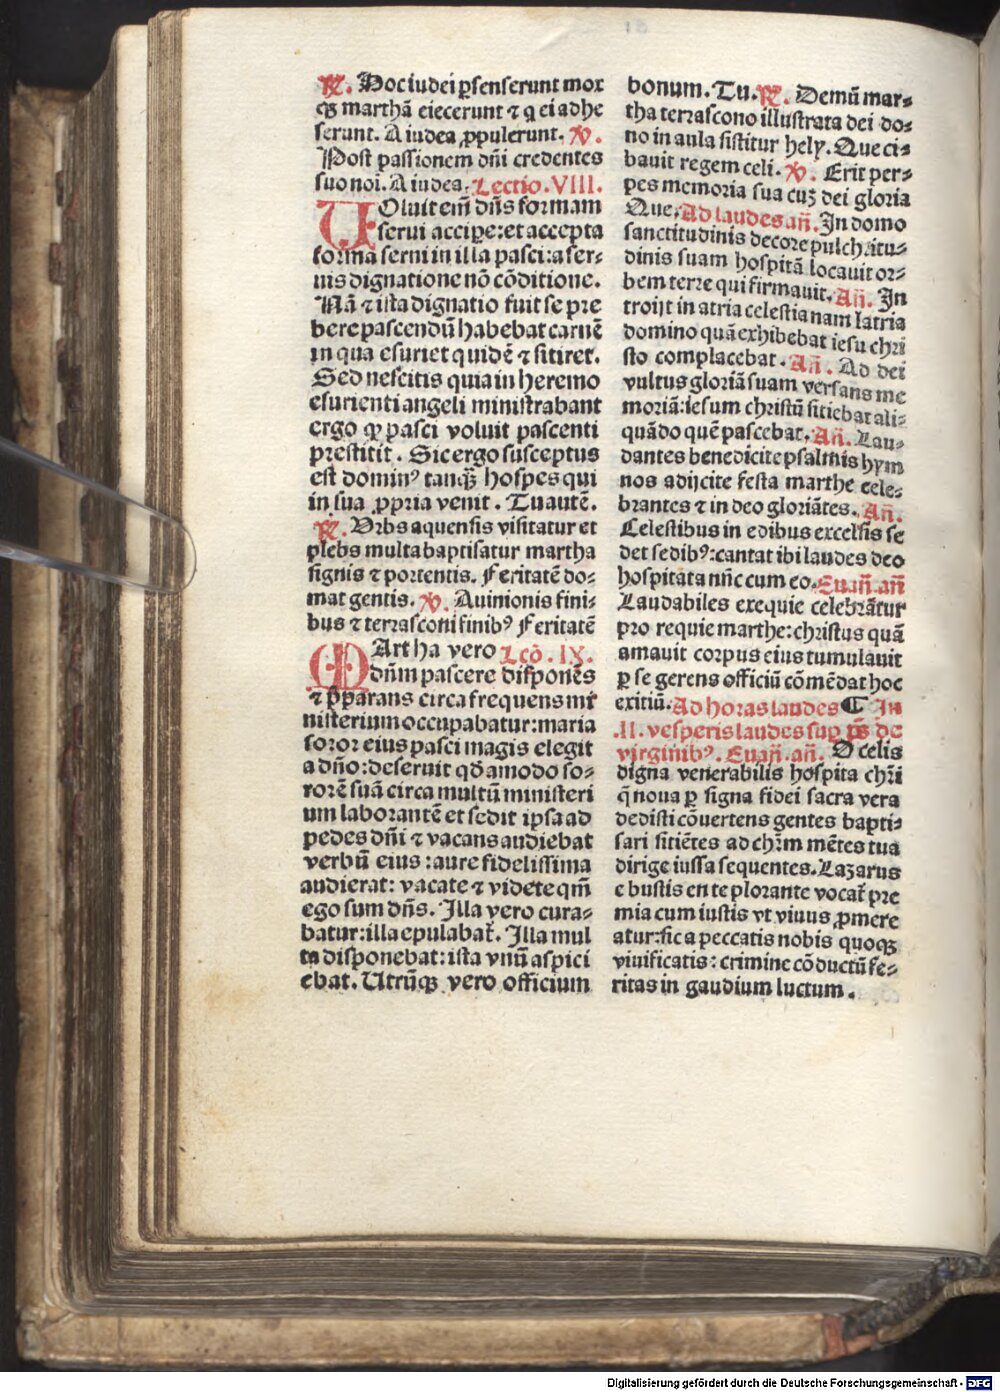 ℟. Hoc iudei ꝑsenserunt mox
qꝫ marthā eiecerunt ⁊ q ei adhe
serunt. A iudea ꝓpulerunt. ℣.
Post passionem dñi credentes
suo noi. A iudea. Lectio. VIII.
UOluit em̄ dñs formam
serui accipe: et accepta
forma serui in illa pasci: a ser⸗
uis dignatione nō cōditione.
Nā ⁊ ista dignatio fuit se pre
bere pascendū habebat carnē
in qua esuriet quidē ⁊ sitiret.
Sed nescitis quia in heremo
esurienti angeli ministrabant
ergo ꝙ pasci voluit pascenti
prestitit. Sic ergo susceptus
est dominꝰ tanqꝫ hospes qui
in sua ꝓpria venit. Tu autē.
℟. Urbs aquensis visitatur et
plebs multa baptisatur martha
signis ⁊ portentis. Feritatē do⸗
mat gentis. ℣. Auinionis fini⸗
bus ⁊ terrasconi finibꝰ Feritatē
MArtha vero Lcō. IX.
dn̄m pascere disponēs
⁊ p̄parans circa frequens mi
nisterium occupabatur: maria
soror eius pasci magis elegit
a dño: deseruit qd̄ amodo so⸗
rorē suā circa multū ministeri
um laborantē et sedit ipsa ad
pedes dñi ⁊ vacans audiebat
verbū eius: aure fidelissima
audierat: vacate ⁊ videte qm̄
ego sum dñs. Illa vero cura⸗
batur: illa epulabat̄. Illa mul
ta disponebat: ista vnū aspici
ebat. Utrūqꝫ vero officium
bonum. Tu. ℟. Demū mar⸗
tha terrascono illustrata dei do⸗
no in aula sistitur hely. Que ci⸗
bauit regem celi. ℣. Erit per⸗
pes memoria sua cuꝫ dei gloria
Que. Ad laudes añ. In domo
sanctitudinis decore pulchritu⸗
dinis suam hospitā locauit or⸗
bem terre qui firmauit. Añ. In
troijt in atria celestia nam latria
domino quā exhibebat iesu chri
sto complacebat. Añ. Ad dei
vultus gloriā suam versans me
moriā: iesum christū sitiebat ali⸗
quādo quē pascebat. Añ. Lau⸗
dantes benedicite psalmis hym
nos adijcite festa marthe cele⸗
brantes ⁊ in deo gloriātes. Añ.
Celestibus in edibus excelsis se
det sedibꝰ: cantat ibi laudes deo
hospitata nūc cum eo. Euañ. añ
Laudabiles exequie celebrātur
pro requie marthe: christus quā
amauit corpus eius tumulauit
ꝑ se gerens officiū cōmēdat hoc
exitiū. Ad horas laudes ¶ In
.II. vesperis laudes sup p̄s de
virginibꝰ. Euañ. añ. O celis
digna venerabilis hospita chr̄i
q̄ noua ꝑ signa fidei sacra vera
dedisti cōuertens gentes bapti⸗
sari sitiētes ad chr̄m mētes tua
dirige iussa sequentes. Lazarus
e bustis en te plorante vocat̄ pre
mia cum iustis vt viuus ꝓmere
atur: sic a peccatis nobis quoqꝫ
viuificatis: crimine cōductū fe⸗
ritas in gaudium luctum.
Digitalisierung gefördert durch die Deutsche Forschungsgemeinschaft - DFG